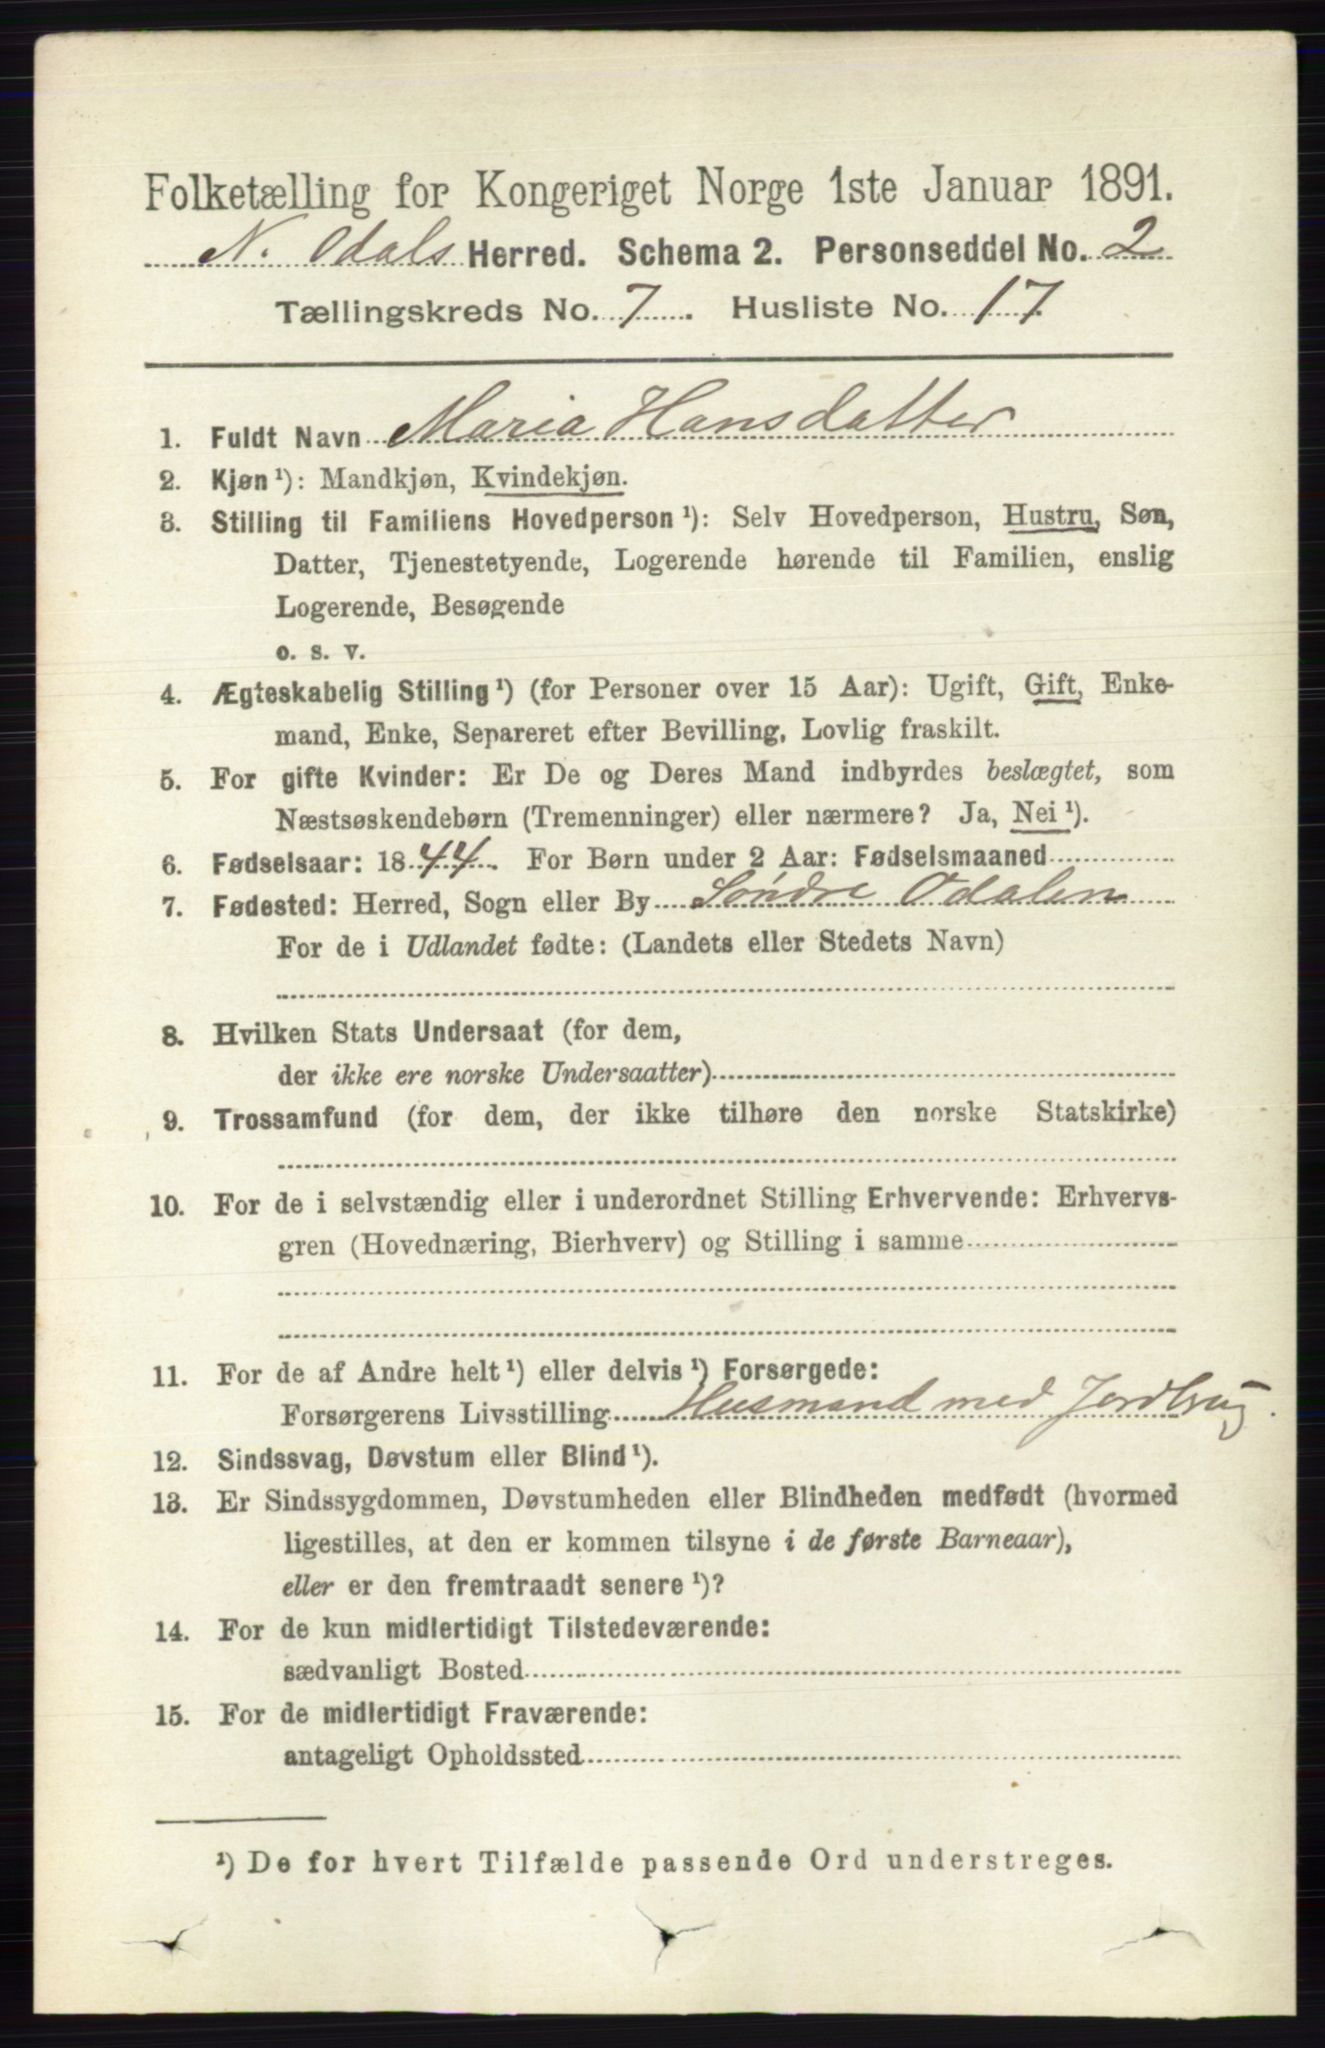 Folketælling for Kongeriget Norge 1ste Januar 1891.
N. Odals Herred. Schema 2. Personseddel No. 2
Tællingskreds No. 7. Husliste No. 17.
1. Fuldt Navn Maria Hansdatter
2. Kjøn¹): Mandkjøn, Kvindekjøn.
3. Stilling til Familiens Hovedperson¹): Selv Hovedperson, Hustru, Søn,
Datter, Tjenestetyende, Logerende hørende til Familien, enslig
Logerende, Besøgende
o. s. v.
4. Ægteskabelig Stilling¹) (for Personer over 15 Aar): Ugift, Gift, Enke-
mand, Enke, Separeret efter Bevilling, Lovlig fraskilt.
5. For gifte Kvinder: Er De og Deres Mand indbyrdes beslægtet, som
Næstsøskendebørn (Tremenninger) eller nærmere? Ja, Nei¹).
6. Fødselsaar: 1844. For Børn under 2 Aar: Fødselsmaaned
7. Fødested: Herred, Sogn eller By Søndre Odalen
For de i Udlandet fødte: (Landets eller Stedets Navn)
8. Hvilken Stats Undersaat (for dem,
der ikke ere norske Undersaatter)
9. Trossamfund (for dem, der ikke tilhøre den norske Statskirke)
10. For de i selvstændig eller i underordnet Stilling Erhvervende: Erhvervs-
gren (Hovednæring, Bierhverv) og Stilling i samme
11. For de af Andre helt¹) eller delvis¹) Forsørgede:
Forsørgerens Livsstilling Husmand med Jordbrug.
12. Sindssvag, Døvstum eller Blind¹).
13. Er Sindssygdommen, Døvstumheden eller Blindheden medfødt (hvormed
ligestilles, at den er kommen tilsyne i de første Barneaar),
eller er den fremtraadt senere¹)?
14. For de kun midlertidigt Tilstedeværende:
sædvanligt Bosted
15. For de midlertidigt Fraværende:
antageligt Opholdssted
¹) De for hvert Tilfælde passende Ord understreges.